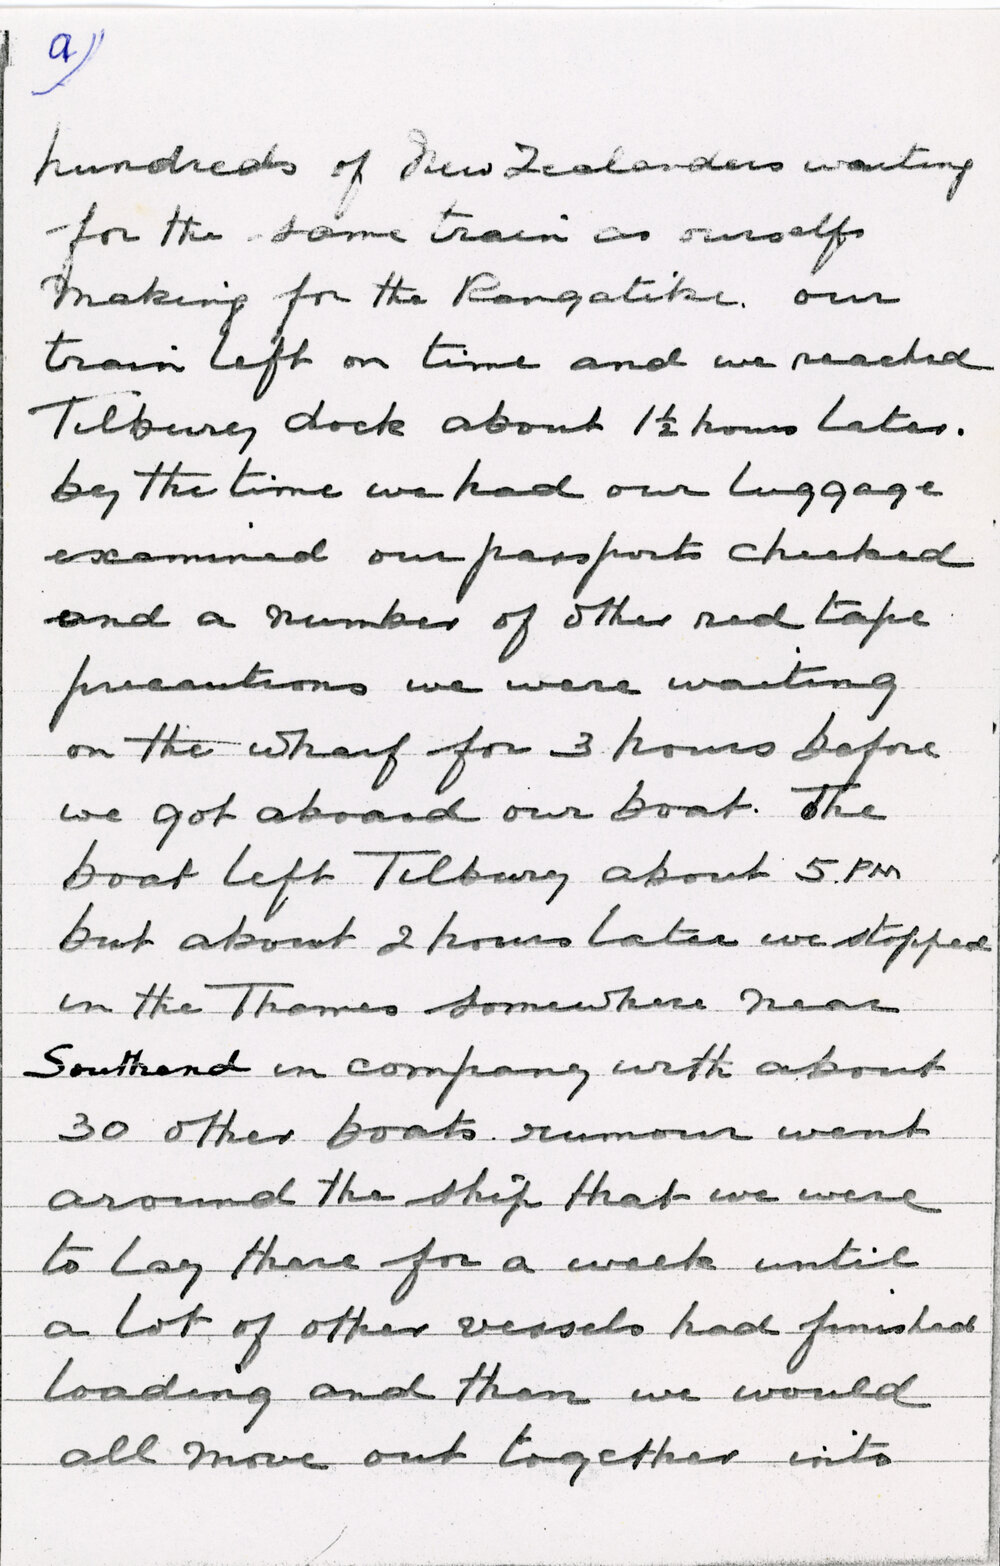 a)
hundreds of New Zealanders waiting
for the same train as ourselfs
making for the Rangatike. our
train left on time and we reached
Tilburey dock about 1½ hours later.
by the time we had our luggage
examined our passports checked
and a number of other red tape
precautions we were waiting
on the wharf for 3 hours before
we got aboard our boat. The
boat left Tilbury about 5.PM
but about 2 hours later we stopped
in the Thames somewhere near
Southend in company with about
30 other boats. rumour went
around the ship that we were
to lay there for a week until
a lot of other vessels had finished
loading and then we would
all move out together into